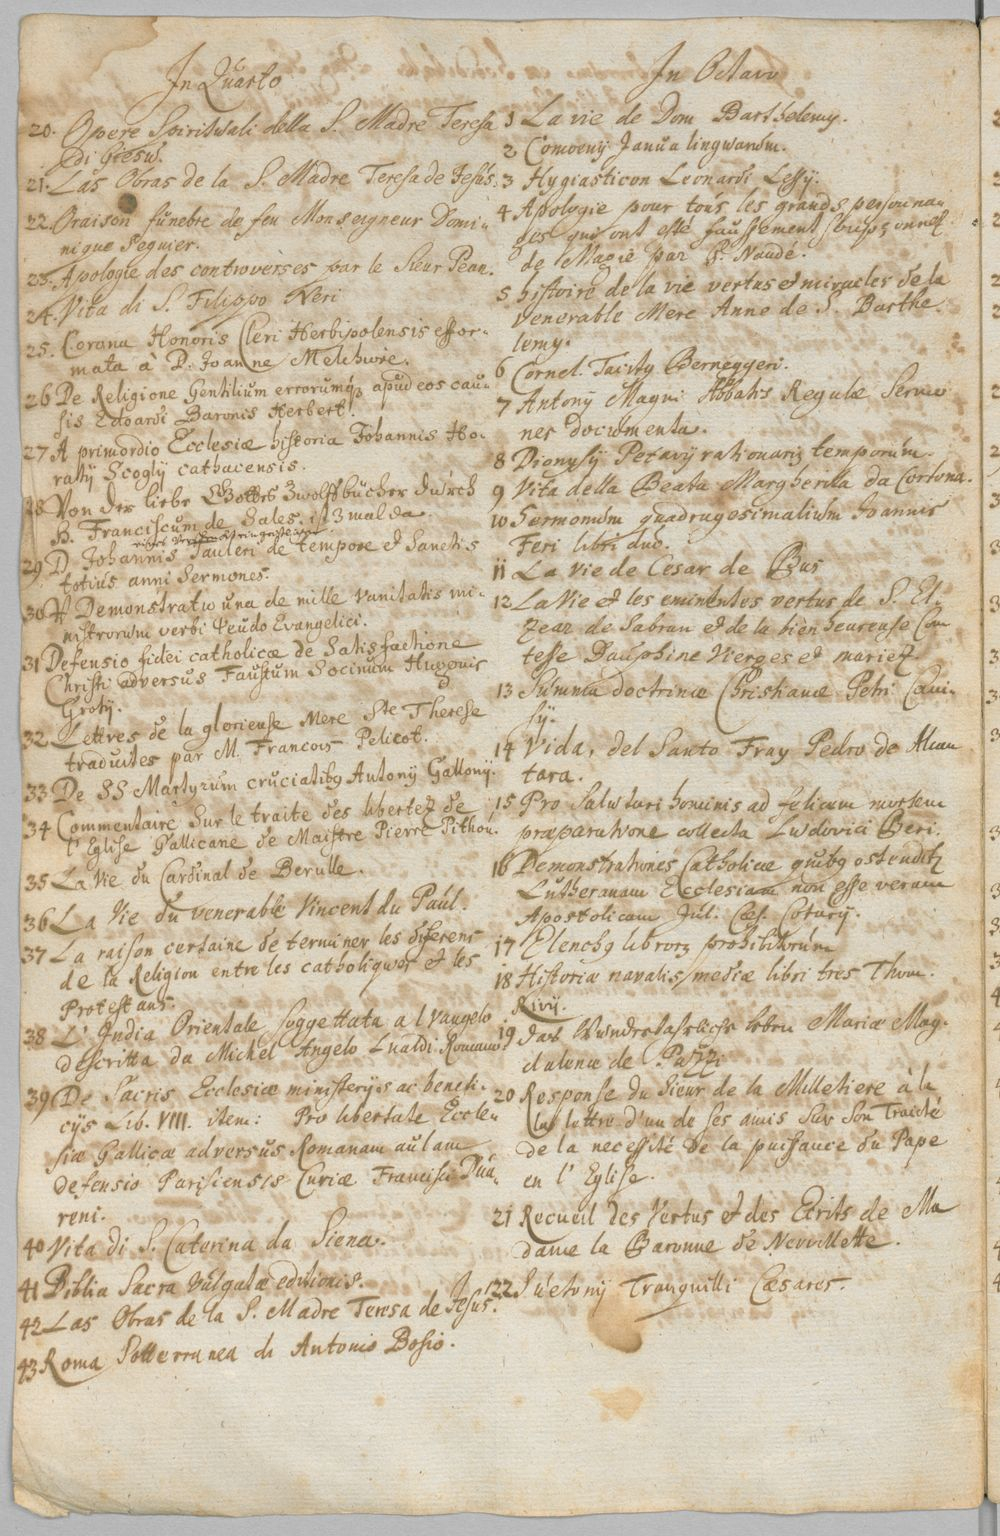 In Quarto
20. Opere Spirituali della S. Madre Teresa
di Giesu.
21. Las Obras de la S. Madre Teresa de Jesús.
22. Oraison funebre de feu Monseigneur Domi-
nique Seguier.
23. Apologie des controverses par le Sieur Pean.
24. Vita di S. Filippo Neri
25. Corona Honoris Cleri Herbipolensis effor-
mata à P. Joanne Melchiore.
26 De Religione Gentilium errorumq3 apud eos cau-
sis Edoardi Baronis Herbert.
27 A primordio Ecclesiæ historia Johannis Ho-
ratij Scoglij cathacensis.
28 Von der liebe Gottes Zwölff bücher durch
B. Franciscum de Sales. ist 3 mal da
29 D. Johannis Tauleri de tempore et Sanctis
totius anni Sermones.
30 Demonstratio una de mille vanitatis mi-
nistrorum verbi Pseudo Evangelici.
31 Defensio fidei catholicæ de Satisfactione
Christi adversus Faustum Socinum Hugonis
Grotij.
32. Lettres de la glorieuse Mere Ste Therese
traduites par M. Francois Pelicot.
33 De SS Martyrum cruciatibq Antonij Gallonij.
34 Commentaire Sur le traite des libertez de
l'Eglise Gallicane de Maistre Pierre Pithou.
35 La Vie du Cardinal de Berulle.
36 La Vie du venerable Vincent du Paul.
37 La raison certaine de terminer les diferens
de la Religion entre les catholiques et les
Protestans.
38 L'India Orientale Soggettata al Vangelo
descritta da Michel Angelo Lualdi Romano
39 De Sacris Ecclesiæ ministerijs ac benefi-
cijs Lib. VIII. item: Pro libertate Eccle-
siæ Gallicæ adversus Romanam aulam
defensio Parisiensis Curiæ Francisci Dua-
reni.
40 Vita di S. Caterina da Siena.
41 Biblia Sacra Vulgatæ editionis.
42 Las Obras de la S. Madre Teresa de Jesus.
43 Roma Sotterranea di Antonio Bosio.
In Octavo
1 La vie de Dom Barthelemy.
2 Comoenij Janua linguarum.
3 Hygiasticon Leonardi Lessij.
4 Apologie pour tous les grands personna-
ges qui ont esté faussement soupçonnez
de Magie par G. Naudé.
5 histoire de la vie vertus et miracles de la
Venerable Mere Anne de S. Barthe
lemy.
6 Cornel. Tacitq Berneggeri.
7 Antonij Magni Abbatis Regulæ Sermo
nes documenta.
8 Dionysij Petavij rationariu temporum.
9 Vita della Beata Margherita da Cortona.
10 Sermonum quadragesimalium Joannis
Feri libri duo.
11 La Vie de Cesar de Bus
12 La Vie et les eminentes vertus de S. El-
zear de Sabran et de la bien heureuse Com
tesse Dauphine Vierges et mariez.
13 Summa doctrinæ Christianæ Petri Cani-
sij.
14 Vida, del Santo Fray Pedro de Alcan
tara.
15 Pro Salutari hominis ad felicem mortem
præparatione collecta Ludovici Beri.
16 Demonstrationes Catholicæ quibq ostenditz
Lutheranam Ecclesiam non esse veram
Apostolicam Jul. Cæs. Coturij.
17 Elenchq librorz prohibitorum
18 Historiæ navalis mediæ libri tres Thom.
Rivij.
19 das Wunderbahrliche leben Mariæ Mag-
dalenæ de Pazzi
20 Response du Sieur de la Milletiere à la
lettre d'un de ses amis Sur Son Traicté
de la necessité de la puissance du Pape
en l'Eglise.
21 Recueil des Vertus et des Ecrits de Ma
dame la Baronne de Neuvillette.
22 Suetonij Tranquilli Cæsares.